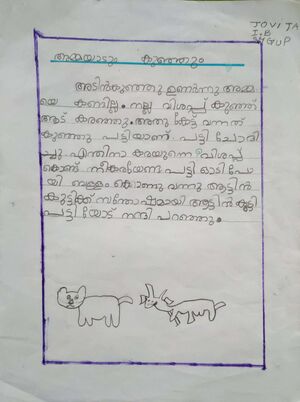 JOVITA
I.B
SMGUP
അമ്മയാടും കുഞ്ഞും
അടിൻകുഞ്ഞു ഉണർന്നു അമ്മ
യെ കണില്ല. നല്ല വിശപ്പ് കുഞ്ഞ്
ആട് കരഞ്ഞു. അതു കേട്ട് വന്നത്
കുഞ്ഞു പട്ടിയാണ് പട്ടി ചോദി
ച്ചു എന്തിനാ കരയുന്നെ വിശപ്പ്
കൊണ്ട് നീകരയേണ്ട പട്ടി ഓടി പോ
യി ബള്ളം കൊണ്ടു വന്നു ആട്ടിൻ
കുട്ടിക്ക് സന്തോഷമായി ആട്ടിൻ കുട്ടി
പട്ടി യോട് നന്ദി പറഞ്ഞു.